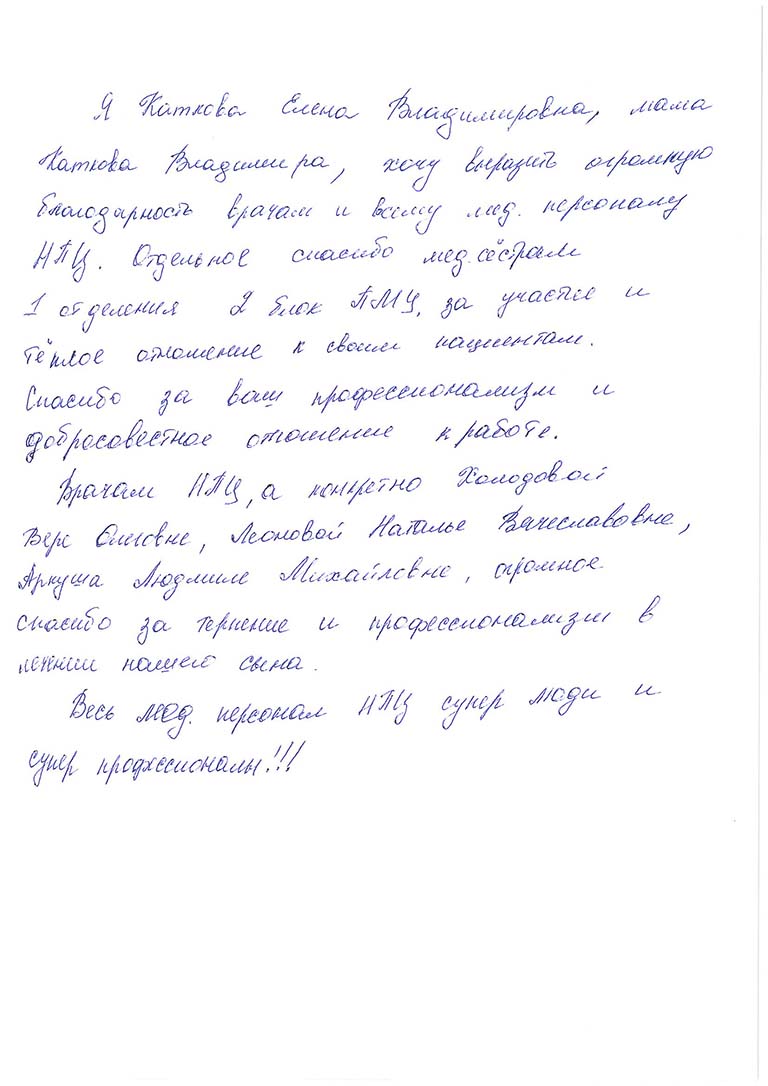 Я Каткова Елена Владимировна, мама
Каткова Владимира, хочу выразить огромную
благодарность врачам и всему мед. персоналу
НПЦ. Отдельное спасибо мед.сёстрам
1 отделения 2 блок ПМЦ, за участие и
тёплое отношение к своим пациентам.
Спасибо за ваш профессионализм и
добросовестное отношение к работе.
Врачам НПЦ, а конкретно Холодовой
Вере Олеговне, Леоновой Наталье Вячеславовне,
Аркуша Людмиле Михайловне, огромное
спасибо за терпение и профессионализм в
лечении нашего сына.
Весь мед. персонал НПЦ супер люди и
супер профессионалы!!!